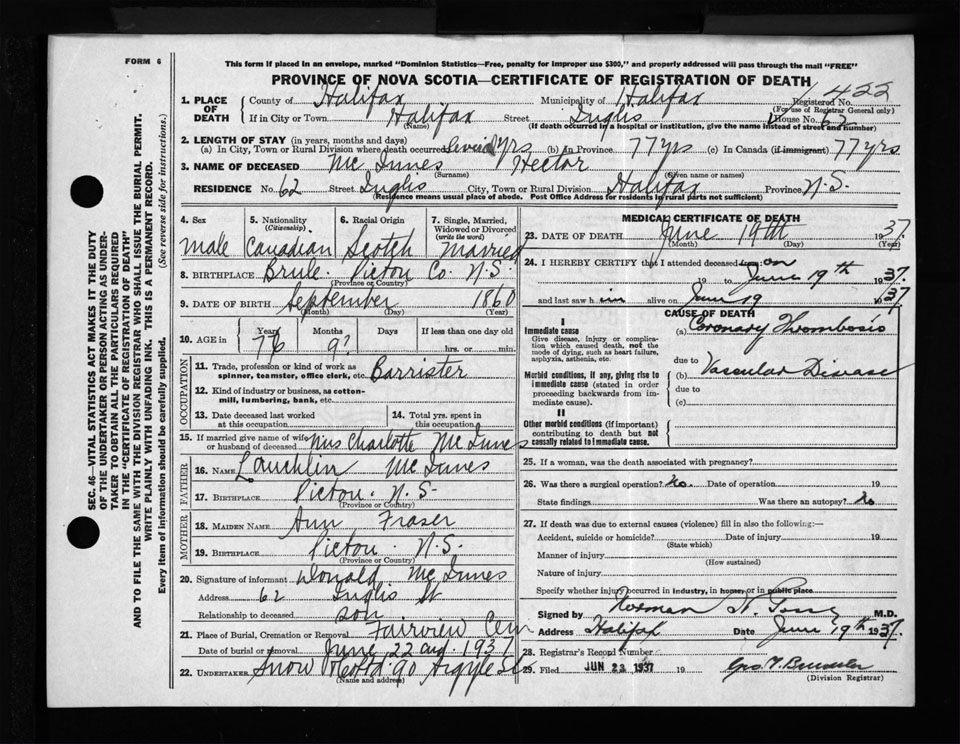 FORM 6
This form if placed in an envelope, marked "Dominion Statistics—Free, penalty for improper use $300," and properly addressed will pass through the mail "FREE"
PROVINCE OF NOVA SCOTIA—CERTIFICATE OF REGISTRATION OF DEATH
1. PLACE OF DEATH
County of Halifax Municipality of Halifax Registered No. 422
(For use of Registrar General only)
If in City or Town Halifax Street Inglis House No. 62
(Name) (If death occurred in a hospital or institution, give the name instead of street and number)
2. LENGTH OF STAY (in years, months and days)
(a) In City, Town or Rural Division where death occurred Several yrs (b) In Province 77 yrs (c) In Canada (if immigrant) 77 yrs
3. NAME OF DECEASED Mc Innes Hector
(Surname) (Given name or names)
RESIDENCE No. 62 Street Inglis City, Town or Rural Division Halifax Province N.S.
(Residence means usual place of abode. Post Office Address for residents in rural parts not sufficient)
4. Sex 5. Nationality (Citizenship) 6. Racial Origin 7. Single, Married, Widowed or Divorced (write the word)
male Canadian Scotch Married
8. BIRTHPLACE Brule. Pictou Co. N.S.
(Province or Country)
9. DATE OF BIRTH September 1860
(Month) (Day) (Year)
10. AGE in Years Months Days If less than one day old
76 9? hrs. or min.
OCCUPATION
11. Trade, profession or kind of work as spinner, teamster, office clerk, etc. Barrister
12. Kind of industry or business, as cotton-mill, lumbering, bank, etc.
13. Date deceased last worked at this occupation 14. Total yrs. spent in this occupation
15. If married give name of wife or husband of deceased Mrs Charlotte McInnes
FATHER
16. NAME Lauchlin McInnes
17. BIRTHPLACE Pictou. N.S.
(Province or Country)
MOTHER
18. MAIDEN NAME Ann Fraser
19. BIRTHPLACE Pictou. N.S.
(Province or Country)
20. Signature of informant Donald McInnes
Address 62 Inglis St
Relationship to deceased son
21. Place of Burial, Cremation or Removal Fairview Cem
Date of burial or removal June 22 1937
22. UNDERTAKER Snow 90 Argyle St
(Name and address)
MEDICAL CERTIFICATE OF DEATH
23. DATE OF DEATH June 19th 1937.
(Month) (Day) (Year)
24. I HEREBY CERTIFY that I attended deceased from on
19 to June 19th 1937.
and last saw him alive on June 19 1937
CAUSE OF DEATH
I
Immediate cause (a) Coronary Thrombosis
Give disease, injury or complication which caused death, not the mode of dying, such as heart failure, asphyxia, asthenia, etc.
due to
Morbid conditions, if any, giving rise to immediate cause (stated in order proceeding backwards from immediate cause). (b) Vascular Disease
due to
(c)
II
Other morbid conditions (if important) contributing to death but not causally related to immediate cause.
25. If a woman, was the death associated with pregnancy?
26. Was there a surgical operation? No. Date of operation 19
State findings Was there an autopsy? No
27. If death was due to external causes (violence) fill in also the following:—
Accident, suicide or homicide? Date of injury 19
(State which)
Manner of injury
(How sustained)
Nature of injury
Specify whether injury occurred in industry, in home, or in public place
Signed by Norman H. M.D.
Address Halifax Date June 19th 1937.
28. Registrar's Record Number
29. Filed JUN 23 1937 19
(Division Registrar)
SEC. 46—VITAL STATISTICS ACT MAKES IT THE DUTY
OF THE UNDERTAKER OR PERSON ACTING AS UNDER-
TAKER TO OBTAIN ALL THE PARTICULARS REQUIRED
IN THE "CERTIFICATE OF REGISTRATION OF DEATH"
AND TO FILE THE SAME WITH THE DIVISION REGISTRAR WHO SHALL ISSUE THE BURIAL PERMIT.
WRITE PLAINLY WITH UNFADING INK. THIS IS A PERMANENT RECORD.
Every item of information should be carefully supplied. (See reverse side for instructions.)